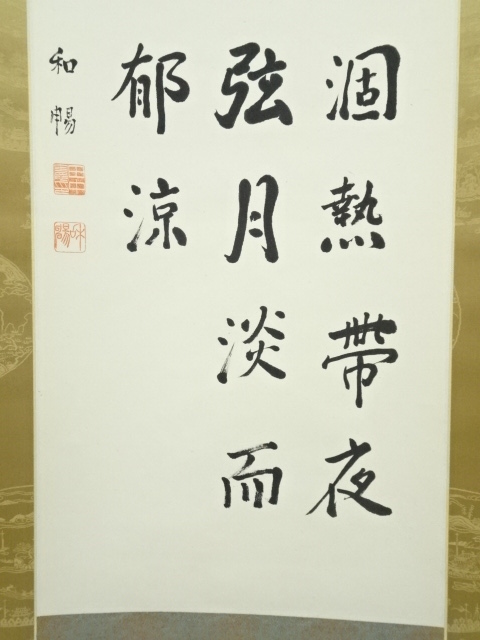 涸熱帶夜
弦月淡而
郁涼
和暢